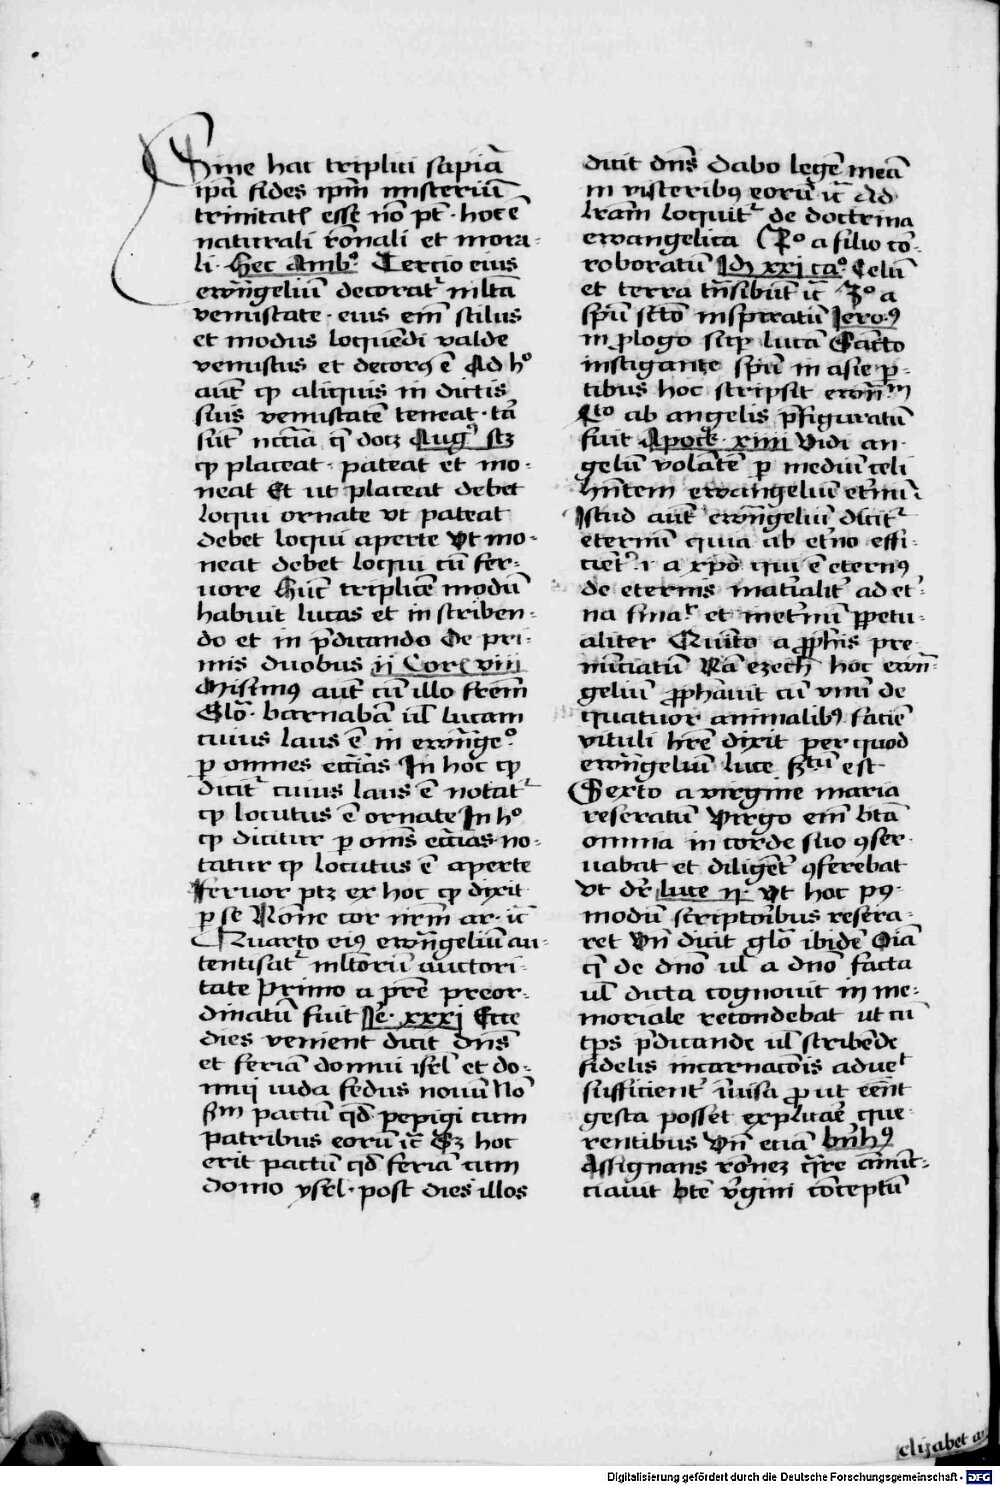 Sine hac triplici sapiā
ipā fides ipm̄ misteriū
trinitatꝭ esse nō pt̄ · hoc ē
naturali rōnali et mora-
li · Hec Ambꝰ Tercio eius
ewn̄geliū decorat᷑ mltā
venustate · eius em̄ stilus
et modus loquēdi valde
venustus et decorꝰ ē Ad hͦ
aut̄ ꝙ aliquis in dictis
suis venustatē teneat · tā
sūt nc̄cia q̄ docꝫ Augꝰ scꝫ
ꝙ placeat · pateat et mo-
neat Et ut placeat debet
loqui ornate vt pateat
debet loqui aperte Vt mo-
neat debet loqui cū fer-
uore Hūc triplicē modū
habuit lucas et in scriben-
do et in p̄dicando De pri-
mis duobus ij Cor viij
Misimꝰ aut̄ cū illo fr̄em
Glō · barnabā ul̄ lucam
cuius laus ē in ewn̄geͦ
ꝑ omnes ecc̄ias In hoc ꝙ
dicit᷑ cuius laus ē notat᷑
ꝙ locutus ē ornate In hͦ
ꝙ dicitur ꝑ om̄s ecc̄ias no-
tatur ꝙ locutus ē aperte
feruor ptꝫ ex hoc ꝙ dixit
ꝑ se Nōne cor nr̄m ar · ic̄
Quarto eiꝰ ewn̄geliū au-
tentisat᷑ mltōrū auctori-
tate Primo a p̄re preor-
dinatū fuit Je · xxxj Ecce
dies venient dicit dn̄s
et feriā domui isrl̄ et do-
mui iuda fedus nouū Nō
sm̄ pactū qd̄ pepigi cum
patribus eorū ic̄ Sꝫ hoc
erit pactū qd̄ feriā cum
domo ysrl̄ · post dies illos
dicit dn̄s Dabo legē meā
in visceribꝰ eorū ic̄ Ad
lr̄am loquit᷑ de doctrina
ewangelica a filio cō-
roboratū xxj caͦ Celū
et terra tn̄sibūt ic̄ 3ͦ a
spū sc̄to inspiratū Jeroꝰ
in ꝓlogo suꝑ lucā Sācto
instigante spū in asie ꝑ-
tibus hoc scripsit ewn̄m
4to ab angelis p̄figuratū
fuit Apocꝭ xiiij Vidi an-
gelū volātē ꝑ mediū celi
hn̄tem ewangeliū et̄nū ·
Istud aut̄ ewn̄geliū dicit᷑
eternū quia ab et̄no effi-
ciēt᷑ · i · a xp̄o qui ē eternꝰ
de eternis mat̄ialit᷑ ad et᷑-
na et ꝑpetu-
aliter Quīto a ꝓph̄is pre-
nūciatū Nā ezech̄ hoc ewn̄-
geliū ꝓph̄auit cū vnū de
quatuor animalibꝰ faciē
vituli hr̄e dixit per quod
ewn̄geliū luce est
Sexto a virgine maria
reseratū Virgo em̄ btā
omnia in corde suo ꝯser-
uabat et diligēt᷑ ꝯferebat
Vt dr̄ luce ij · Vt hoc pꝰ-
modū scriptoribus resera-
ret Vn̄ dicit glō ibidē Oīa
q̄ de dn̄o ul̄ a dn̄o facta
ul̄ dicta cognouit in me-
moriale recondebat ut cū
tp̄s p̄dicande ul̄ scribēde
fidelis incarnacōis
sufficient᷑ ꝓut eēnt
gesta posset explicare que-
rentibus Vn̄ eciā bn̄hꝰ
Assignans rōnez q̄re ānūc-
ciauit btē v᷑gini cōceptū
elizabet
Digitalisierung gefördert durch die Deutsche Forschungsgemeinschaft - DFG